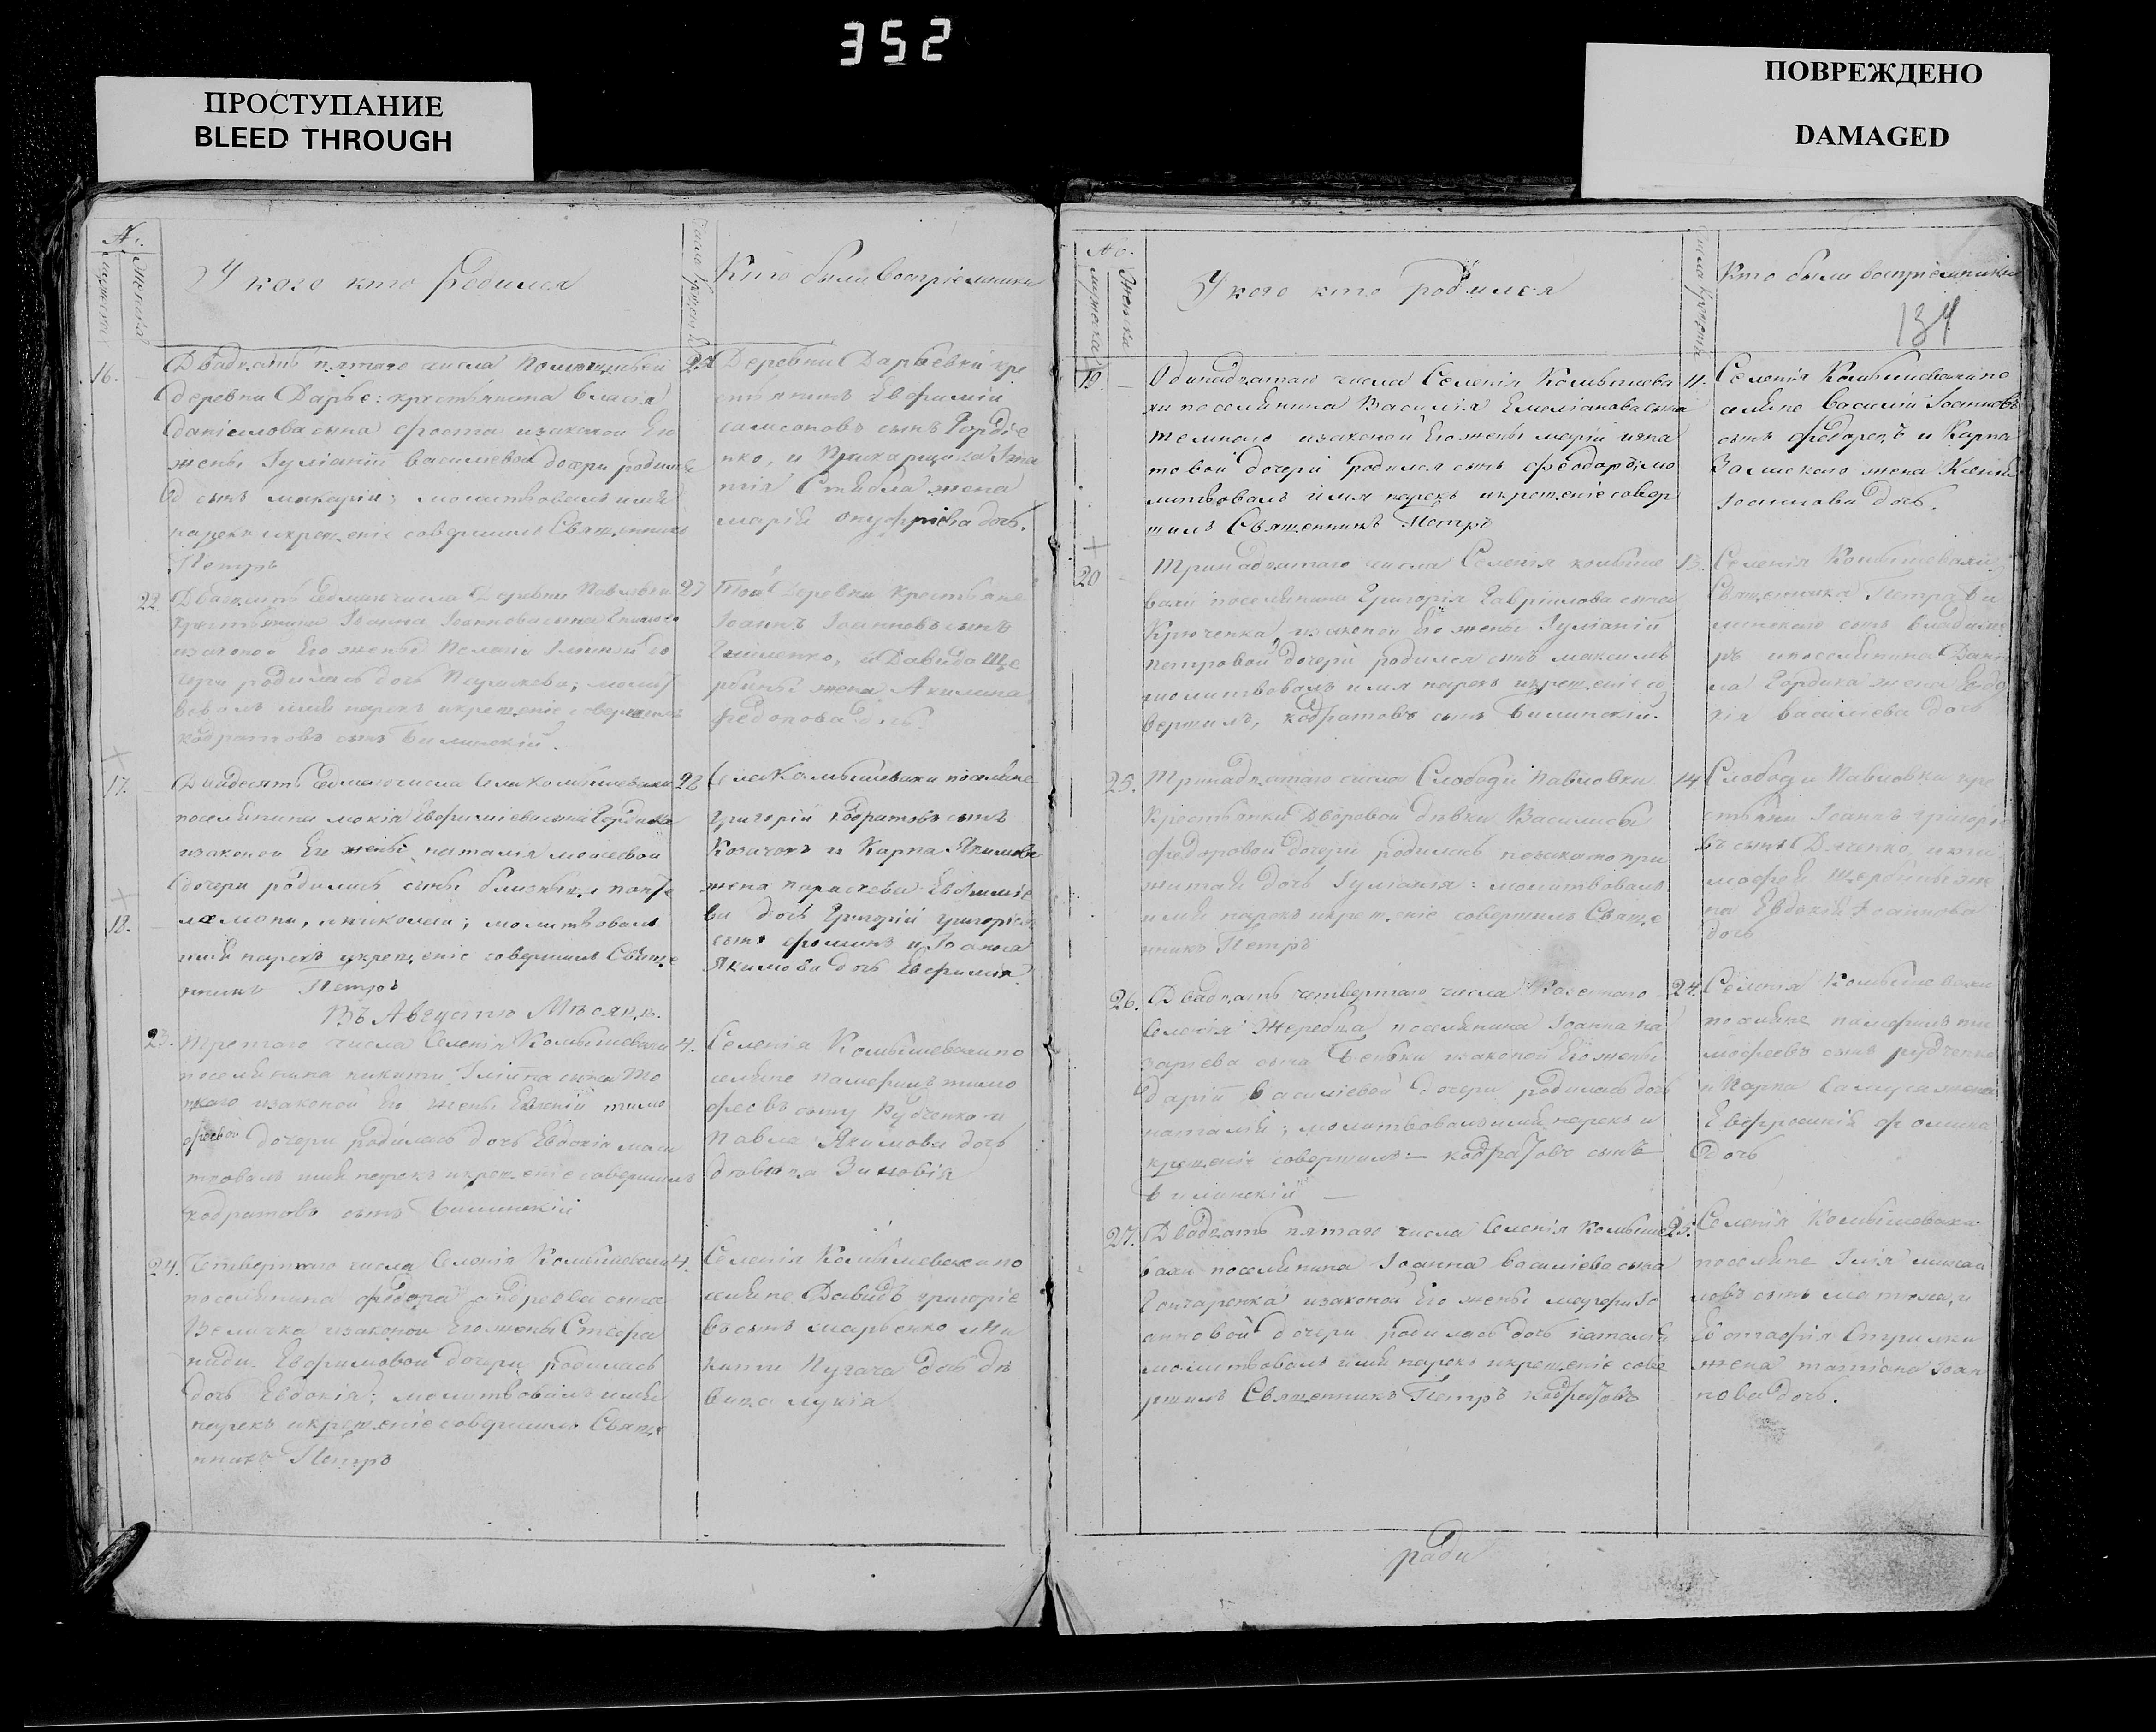 352
ПРОСТУПАНИЕ
BLEED THROUGH
ПОВРЕЖДЕНО
DAMAGED
№.
мужеска
женска
У кого кто родился
Кто были воспріемники
16.
Двадцать пятаго числа
деревни Дарье: крестьянина Власія
Даніилова сына изаконой Его
жены Іуліаніи Василіевой дочери родился
сынъ Макарій; молитвовалъ имя
нарекъ икрещеніе совершилъ Священникъ
Петръ
Деревни Дарьевки кре
стьянинъ Евфимій
самсоновъ сынъ Гордіе
нко, и
жена
марія онуфріева дочь.
22
27
Двадцать седмаго числа Деревни Павловки
крестьянина Іоанна Іоаннова сына
изаконой Его жены
родилась дочь
нарекъ икрещеніе совершилъ
кодратовъ сынъ Билинскій.
Той Деревни Крестьяне
Іоаннъ Іоанновъ сынъ
и Давида Ще
рбины жена Акилина
Федорова дочь.
17.
28
Двадесять седмаго числа Села Комышевахи
поселянина мокія Евфиміева сына Гордіенка
изаконой Его жены наталіи моисеевой
дочери родились сыны близныцы панте
леимонъ, николай; молитвовалъ
имя нарекъ икрещеніе совершилъ Свяще
нникъ Петръ
Села Комышевахи поселяне
Григорій Кодратовъ сынъ
Козачокъ и Карпа Якимова
жена параскева Евфиміе
ва дочь Григорій григоріевъ
сынъ фоминъ и
Якимова дочь Евфимія
18.
Въ Августѣ Мѣсяцѣ.
23.
4.
Третаго числа Селенія Комышевахи
поселянина никиты Іліина сына
изаконой Его жены Евгеніи тимо
феевой дочери родилась дочь Евдокія моли
твовалъ имя нарекъ икрещеніе совершилъ
кодратовъ сынъ билинскій
Селенія Комышевахи по
селяне памфилъ тимо
феевъ сынъ Рудченко и
Павла Якимова дочь
дѣвица Зиновія
24.
4.
Четвертаго числа Селенія Комышевахи
поселянина Федора сына
Величка изаконой Его жены Стефа
ниды Евфимовой дочери родилась
дочь Евдокія; молитвовалъ имя
нарекъ икрещеніе совершилъ Свяще
нникъ Петръ
Селенія Комышевахи по
селяне Давидъ григоріе
въ сынъ марченко и Ни
киты Пугача дочь дѣ
вица лукія
№.
мужеска
Женска
У кого кто родился
Кто были воспріемники
134
19.
11.
Одинадцатаго числа Селенія Комышева
хи поселянина Василія Емеліанова сына
Темного изаконой Его жены маріи игна
товой дочери родился сынъ феодоръ; мо
литвовалъ имя нарекъ икрещеніе совер
шилъ Священникъ Петръ
Селенія Комышевахи по
селяне Василій Іоанновъ
сынъ и Карпа
жена Ксенія
Іоаннова дочь.
20
13.
Тринадцатаго числа Селенія комыше
вахи поселянина Григорія Гавріилова сына
Крюченка, изаконой Его жены Іуліаніи
петровой дочери родился сынъ максимъ
молитвовалъ имя нарекъ икрещеніе со
вершилъ, кодратовъ сынъ Билинскій.
Селенія Комышевахи
Священника Петра Би
линского сынъ Владими
ръ ипоселянина Дани
ла Гордика жена Евдо
кія Василіева дочь
25.
14.
Тринадцатаго числа Слободы Павловки
Крестьянки Дворовой дѣвки Василисы
федоровой дочери родилась незаконопри
житая дочь Іуліанія: молитвовалъ
имя нарекъ икрещеніе совершилъ Свяще
нникъ Петръ
Слободы Павловки кре
стьяни Іоаннъ григоріе
въ сынъ Дяченко, и ти
мофея Щербины же
на Евдокія Іоаннова
дочь
26.
24.
Двадцать четвертаго числа Казенного
Селенія Жеребца поселянина Іоанна На
зарева сына Беньки изаконой Его жены
Даріи Василіевой Дочери родилась дочь
наталія; молитвовалъ имя нарекъ и
крещеніе совершилъ: — кодратовъ сынъ
билинскій —
Селенія Комышевахи
поселяне памфилъ ти
мофеевъ сынъ рудченко
и Карпа Самуся жена
Евфросинія фомина
дочь
27.
25.
Двадцать пятаго числа Селенія Комыше
вахи поселянина Іоанна Василіева сына
Гончаренка изаконой Его жены марфы Іо
анновой дочери родилась дочь наталія
молитвовалъ имя нарекъ икрещеніе сове
ршилъ Священникъ Петръ кодратовъ
Селенія Комышевахи
поселяне Ілія михаи
ловъ сынъ и
Евстафія
жена татіана Іоан
нова дочь.
роди